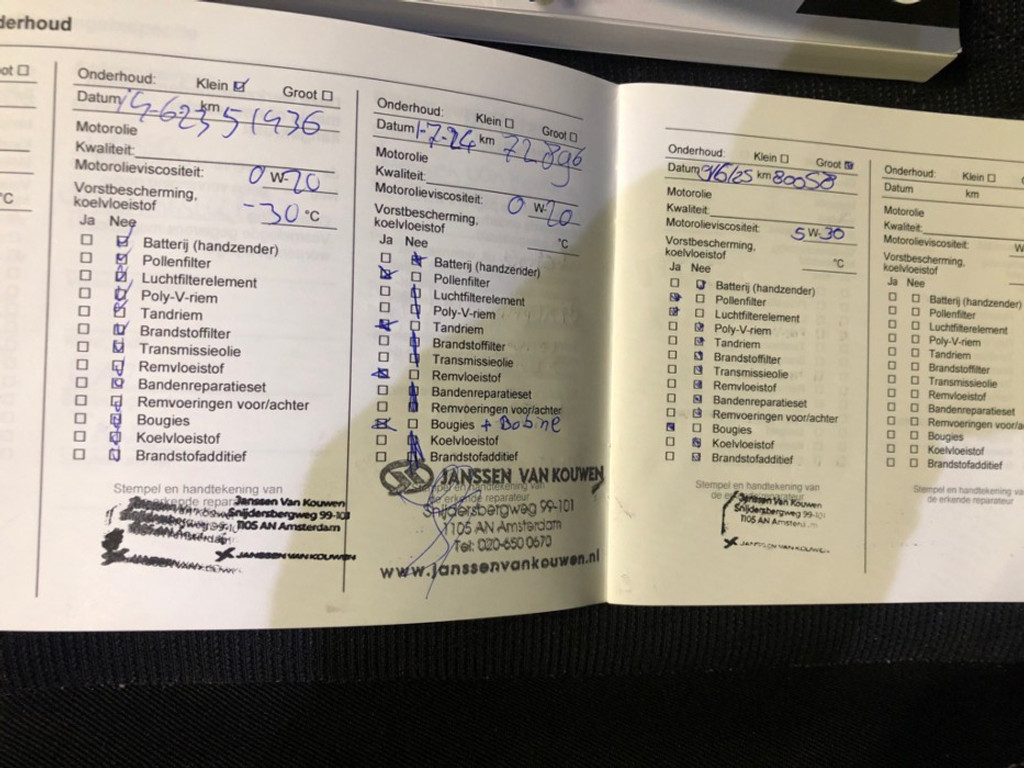 derhoud
ot ☐
°C
Onderhoud: Klein ☑ Groot ☐
Datum 19-6-23 km 51936
Motorolie
Kwaliteit:
Motorolieviscositeit: 0 W-20
Vorstbescherming, koelvloeistof -30 °C
Ja Nee
☐ ☑ Batterij (handzender)
☐ ☑ Pollenfilter
☐ ☑ Luchtfilterelement
☐ ☑ Poly-V-riem
☐ ☑ Tandriem
☐ ☑ Brandstoffilter
☐ ☑ Transmissieolie
☐ ☑ Remvloeistof
☐ ☑ Bandenreparatieset
☐ ☑ Remvoeringen voor/achter
☐ ☑ Bougies
☐ ☑ Koelvloeistof
☐ ☑ Brandstofadditief
Stempel en handtekening van
de erkende reparateur
Janssen Van Kouwen
Snijdersbergweg 99-101
1105 AN Amsterdam
JANSSEN VAN KOUWEN
Onderhoud: Klein ☐ Groot ☐
Datum 1-7-24 km 72896
Motorolie
Kwaliteit:
Motorolieviscositeit: 0 W-20
Vorstbescherming,
koelvloeistof °C
Ja Nee
☐ ☒ Batterij (handzender)
☒ ☐ Pollenfilter
☐ ☒ Luchtfilterelement
☐ ☒ Poly-V-riem
☒ ☐ Tandriem
☐ ☒ Brandstoffilter
☐ ☒ Transmissieolie
☒ ☐ Remvloeistof
☐ ☒ Bandenreparatieset
☐ ☒ Remvoeringen voor/achter
☒ ☐ Bougies + Bobine
☐ ☒ Koelvloeistof
☐ ☒ Brandstofadditief
JANSSEN VAN KOUWEN
Snijdersbergweg 99-101
1105 AN Amsterdam
Tel: 020-650 0670
www.janssenvankouwen.nl
Onderhoud: Klein ☐ Groot ☒
Datum 9/6/25 km 80058
Motorolie
Kwaliteit:
Motorolieviscositeit: 5 W-30
Vorstbescherming,
koelvloeistof °C
Ja Nee
☐ ☒ Batterij (handzender)
☒ ☐ Pollenfilter
☒ ☐ Luchtfilterelement
☐ ☒ Poly-V-riem
☐ ☒ Tandriem
☐ ☒ Brandstoffilter
☐ ☒ Transmissieolie
☐ ☒ Remvloeistof
☐ ☒ Bandenreparatieset
☐ ☒ Remvoeringen voor/achter
☒ ☐ Bougies
☐ ☒ Koelvloeistof
☐ ☒ Brandstofadditief
Stempel en handtekening van
de erkende reparateur
Janssen Van Kouwen
Snijdersbergweg 99-101
1105 AN Amsterdam
JANSSEN VAN KOUWEN
Onderhoud: Klein ☐
Datum km
Motorolie
Kwaliteit:
Motorolieviscositeit: W
Vorstbescherming,
koelvloeistof
Ja Nee
☐ ☐ Batterij (handzender)
☐ ☐ Pollenfilter
☐ ☐ Luchtfilterelement
☐ ☐ Poly-V-riem
☐ ☐ Tandriem
☐ ☐ Brandstoffilter
☐ ☐ Transmissieolie
☐ ☐ Remvloeistof
☐ ☐ Bandenreparatieset
☐ ☐ Remvoeringen voor/a
☐ ☐ Bougies
☐ ☐ Koelvloeistof
☐ ☐ Brandstofadditief
Stempel en handtekening va
de erkende reparateur